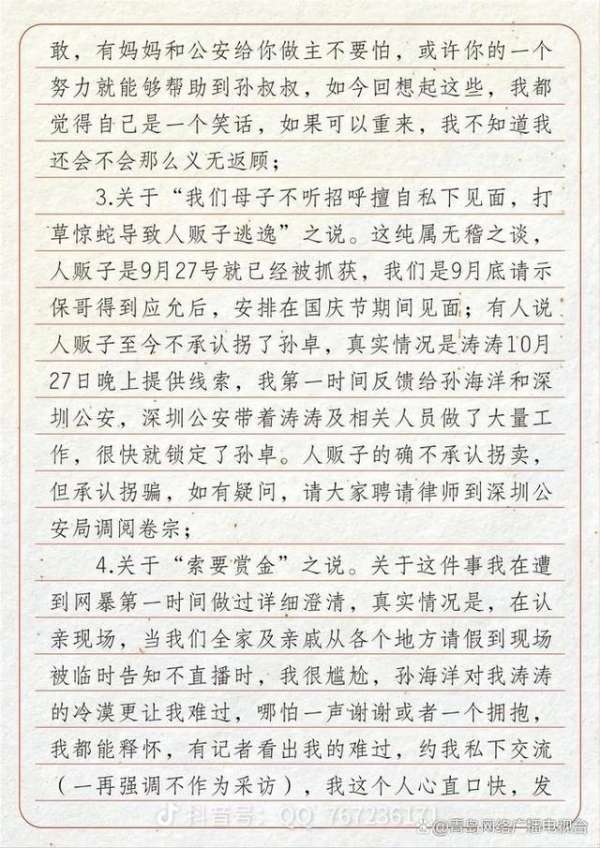 敢，有妈妈和公安给你做主不要怕，或许你的一个
努力就能够帮助到孙叔叔，如今回想起这些，我都
觉得自己是一个笑话，如果可以重来，我不知道我
还会不会那么义无返顾；
3.关于“我们母子不听招呼擅自私下见面，打
草惊蛇导致人贩子逃逸”之说。这纯属无稽之谈，
人贩子是9月27号就已经被抓获，我们是9月底请示
保哥得到应允后，安排在国庆节期间见面；有人说
人贩子至今不承认拐了孙卓，真实情况是涛涛10月
27日晚上提供线索，我第一时间反馈给孙海洋和深
圳公安，深圳公安带着涛涛及相关人员做了大量工
作，很快就锁定了孙卓。人贩子的确不承认拐卖，
但承认拐骗，如有疑问，请大家聘请律师到深圳公
安局调阅卷宗；
4.关于“索要赏金”之说。关于这件事我在遭
到网暴第一时间做过详细澄清，真实情况是，在认
亲现场，当我们全家及亲戚从各个地方请假到现场
被临时告知不直播时，我很尴尬，孙海洋对我涛涛
的冷漠更让我难过，哪怕一声谢谢或者一个拥抱，
我都能释怀，有记者看出我的难过，约我私下交流
（一再强调不作为采访），我这个人心直口快，发
抖音号：QQ_767236171
@青岛网络广播电视台